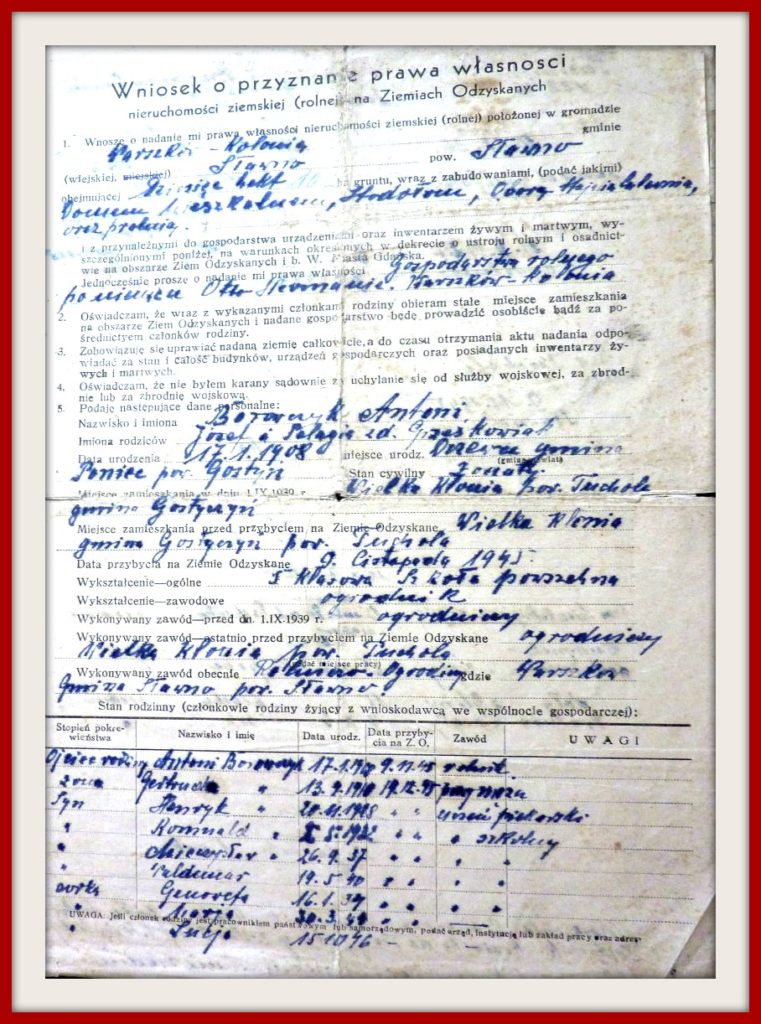 Wniosek o przyznanie prawa własnosci
nieruchomości ziemskiej (rolnej) na Ziemiach Odzyskanych
1. Wnoszę o nadanie mi prawa własności nieruchomości ziemskiej (rolnej) położonej w gromadzie
Warszków - Kolonia gminie
(wiejskiej, miejskiej) Sławno pow. Sławno
obejmującej Dziesięć hekt 10 ha gruntu, wraz z zabudowaniami, (podać jakimi)
Domem Mieszkalnem, Stodołom, Oborą
oraz
i z przynależnymi do gospodarstwa urządzeniami oraz inwentarzem żywym i martwym, wy-
szczególnionymi poniżej, na warunkach określonych w dekrecie o ustroju rolnym i osadnict-
wie na obszarze Ziem Odzyskanych i b. W. Miasta Gdańska.
Jednocześnie proszę o nadanie mi prawa własności Gospodarstwa rolnego
po niemcu Otto Warszków - Kolonia
2. Oświadczam, że wraz z wykazanymi członkami rodziny obieram stałe miejsce zamieszkania
na obszarze Ziem Odzyskanych i nadane gospodarstwo będę prowadzić osobiście bądź za po-
średnictwem członków rodziny.
3. Zobowiązuję się uprawiać nadaną ziemię całkowicie, a do czasu otrzymania aktu nadania odpo-
wiadać za stan i całość budynków, urządzeń gospodarczych oraz posiadanych inwentarzy ży-
wych i martwych.
4. Oświadczam, że nie byłem karany sądownie za uchylanie się od służby wojskowej, za zbrod-
nie lub za zbrodnię wojskową.
5. Podaję następujące dane personalne:
Nazwisko i imiona Borowczyk Antoni
Imiona rodziców Józef i Pelagia zd. Grześkowiak
Data urodzenia 17.1.1908 miejsce urodz. gmina
(gmina, powiat)
Poniec pow. Gostyń Stan cywilny żonaty
Miejsce zamieszkania w dniu 1.IX.1939 r. Wielka Kłonia pow. Tuchola
gmina Gostyczyń
Miejsce zamieszkania przed przybyciem na Ziemie Odzyskane Wielka Klonia
gmina Gostyczyń pow. Tuchola
Data przybycia na Ziemie Odzyskane 9. Listopada 1945
Wykształcenie—ogólne Klasowa Szkoła powszehna
Wykształcenie—zawodowe ogrodnik
Wykonywany zawód—przed dn. 1.IX.1939 r. ogrodniczy
Wykonywany zawód—ostatnio przed przybyciem na Ziemie Odzyskane ogrodniczy
Wielka Kłonia pow. Tuchola
(podać miejsce pracy)
Wykonywany zawód obecnie gdzie Warszków
Gmina Sławno pow. Sławno
Stan rodzinny (członkowie rodziny żyjący z wnioskodawcą we wspólnocie gospodarczej):
Stopień pokrewieństwa Nazwisko i imię Data urodz. Data przybycia na Z. O. Zawód UWAGI
Ojciec rodziny Antoni Borowczyk 9.11.45 rolnik
żona Gertruda "
Syn Henryk " " " uczeń piekarski
" Romuald " " " " szkolny
" Mieczysław " 26.9.37 " " " "
" Waldemar 19.5.40 " " "
córka Genowefa 16.1.39 " " "
UWAGA: Jeśli członek rodziny jest pracownikiem państwowym lub samorządowym, podać urząd, instytucję lub zakład pracy oraz adres
" Łucja 15.10.46 -